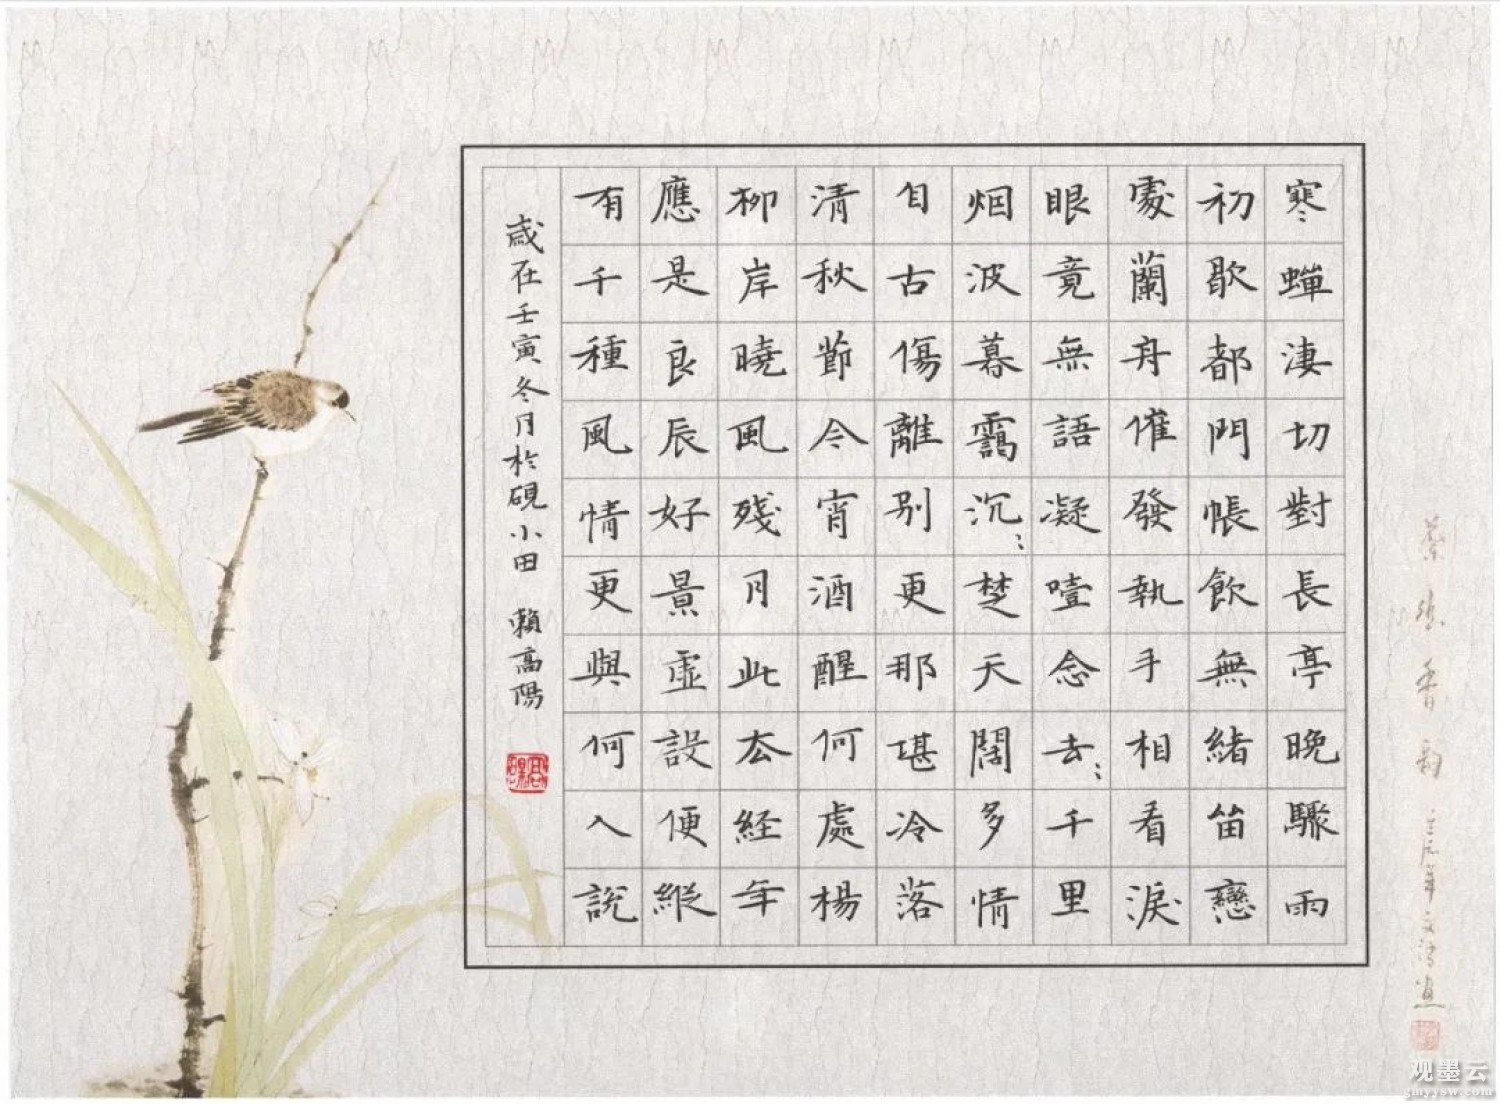 寒蟬淒切對長亭晚驟雨
初歇都門帳飲無緒留戀
處蘭舟催發執手相看淚
眼竟無語凝噎念去〻千里
烟波暮靄沉〻楚天闊多情
自古傷離別更那堪冷落
清秋節今宵酒醒何處楊
柳岸曉風殘月此去経年
應是良辰好景虛設便縱
有千種風情更與何人說
歲在壬寅冬月於硯小田 賴高陽
观墨云
gmyysw.com